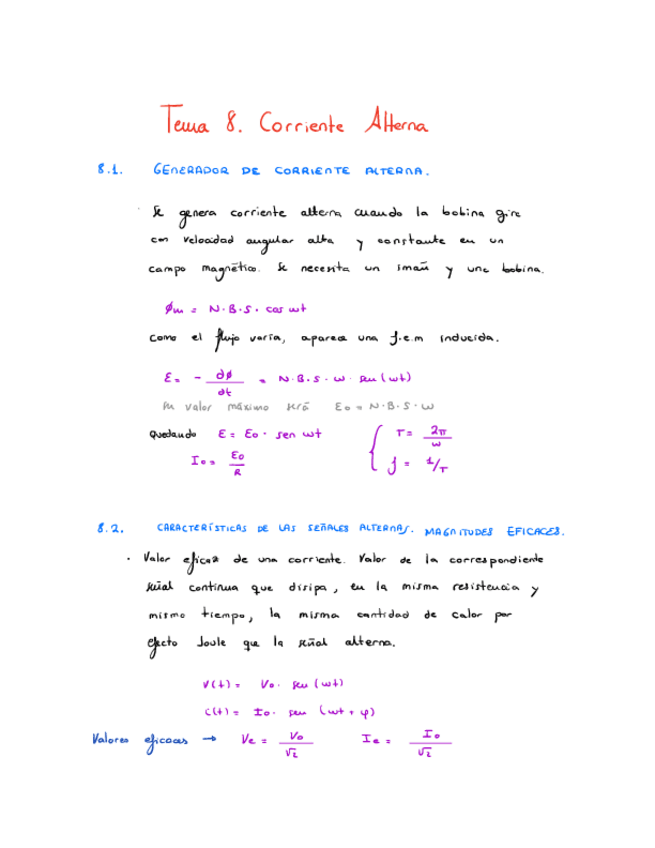 Tema 8. Corriente Alterna
8.1. GENERADOR DE CORRIENTE ALTERNA.
Se genera corriente alterna cuando la bobina gire
con velocidad angular alta y constante en un
campo magnético. Se necesita un imañ y una bobina.
Øm = N·B·S· cos wt
Como el flujo varía, aparece una f.e.m inducida.
E = - dØ/dt = N·B·S·w· sen(wt)
Su valor máximo será Eo = N·B·S·w
Quedando E = Eo· sen wt
Io = Eo/R
T = 2π/w
f = 1/T
8.2. CARACTERÍSTICAS DE LAS SEÑALES ALTERNAS. MAGNITUDES EFICACES.
· Valor eficaz de una corriente. Valor de la correspondiente
señal continua que disipa, en la misma resistencia y
mismo tiempo, la misma cantidad de calor por
efecto Joule que la señal alterna.
V(t) = Vo· sen(wt)
i(t) = Io· sen(wt + φ)
Valores eficaces → Ve = Vo/√2 Ie = Io/√2